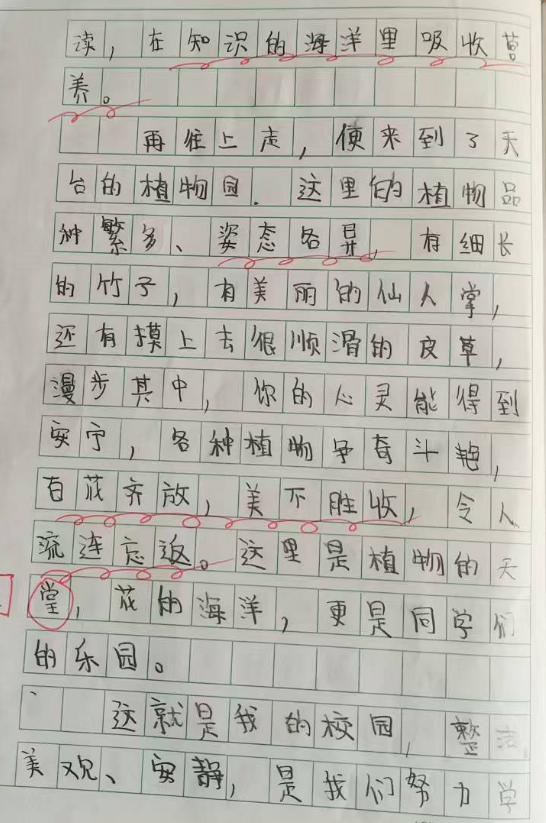 读，在知识的海洋里吸收营
养。
再往上走，便来到了天
台的植物园．这里的植物品
种繁多、姿态各异，有细长
的竹子，有美丽的仙人掌，
还有摸上去很顺滑的皮草，
漫步其中，你的心灵能得到
安宁，各种植物争奇斗艳，
百花齐放，美不胜收，令人
流连忘返。这里是植物的天
堂，花的海洋，更是同学们
的乐园。
这就是我的校园，整洁，
美观、安静，是我们努力学